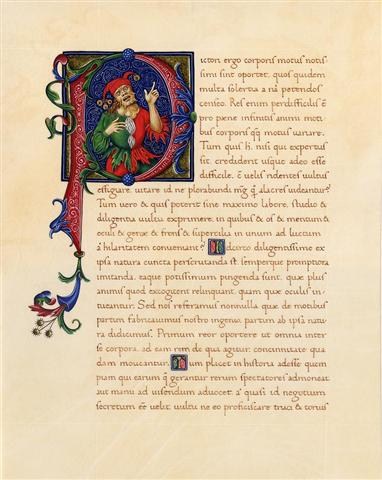 Pictori ergo corporis motus notis
simi sint oportet, quos quidem
multa solertia a nā petendos
censeo. Res enim perdifficilis ē
pro pene infinitis animi moti
bus corporis qq̃ motus variare.
Tum quis hī, nisi qui expertus
sit, crediderit usque adeo esse
difficile, cē velis ridentes vultus
effigiare, vitare id ne plorabundi mg̃ q̃ alacres videantur?
Tum vero & quis poterit sine maximo labore, studio &
diligentia vultu exprimere, in quibus & os & mentum &
oculi & genæ & frons & supercilia in unum ad luctum
a hilaritatem convenient? Idcirco diligentissime ex
ipsa natura cuncta perscrutanda st̄, semperque promptiora
imitanda, eaque potissimum pingenda sunt, quæ plus
animis quod excogitent relinquant, quam quæ oculis in-
tueantur. Sed nos referamus nonnulla quæ de motibus
partim fabricavimus nostro ingenio, partim ab ipsa natu
ra didicimus. Primum reor oportere ut omnia inter
se corpora, ad eam rem de qua agitur, concinnitate qua
dam moveantur. Tum placet in historia adesse quem
piam qui earum q̃ gerantur rerum spectatores admoneat
aut manu ad visendum advocet, a quasi id negotium
secretum eē velit, vultu ne eo proficiscare truci & torvis